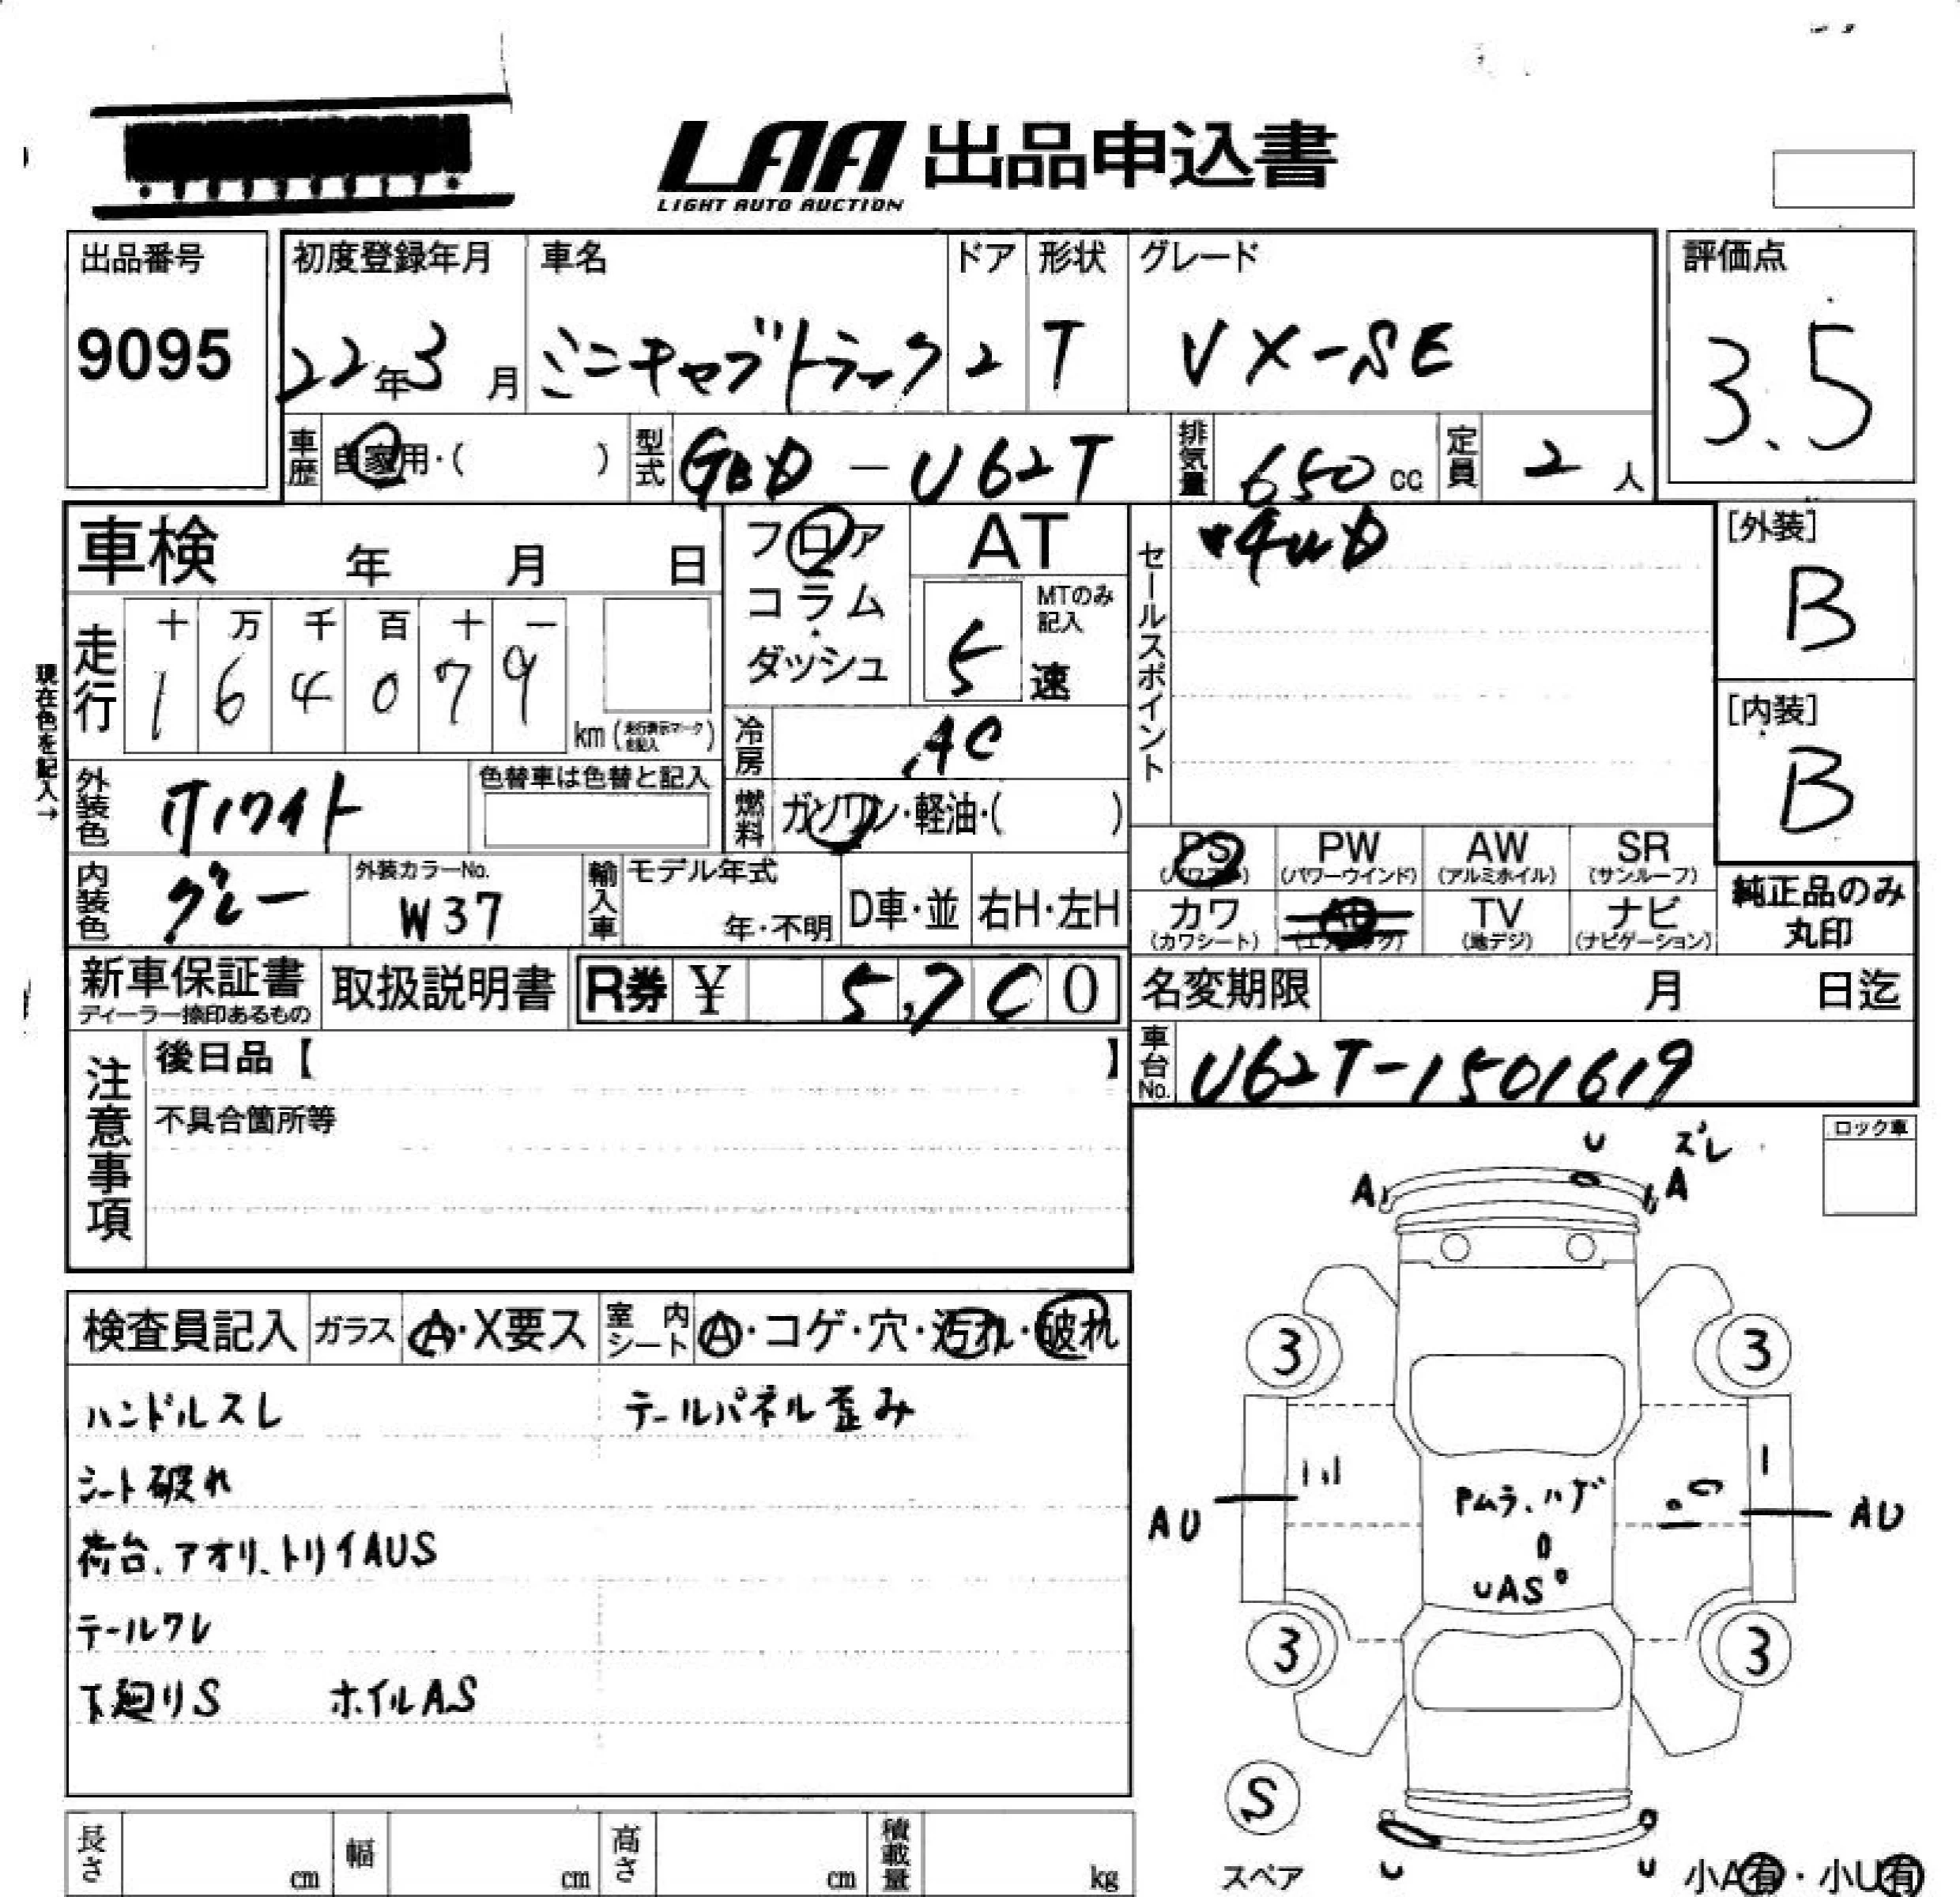 LAA 出品申込書
LIGHT AUTO AUCTION
出品番号
9095
初度登録年月
22年3月
車名
ミニキャブトラック
ドア
2
形状
T
グレード
VX-SE
評価点
3.5
車歴 自家用・( )
型式 GBD-U62T
排気量 650cc
定員 2人
車検 年 月 日
フロア
コラム
ダッシュ
AT
MTのみ
記入
5速
セールスポイント
4WD
[外装]
B
[内装]
B
現在色を記入→
走行
十 万 千 百 十 一
1 6 4 0 7 9
km(走行表示マークを記入)
冷房 AC
外装色 ホワイト
色替車は色替と記入
燃料 ガソリン・軽油・( )
内装色 グレー
外装カラーNo.
W37
輸入車
モデル年式
年・不明
D車・並
右H・左H
PS
(パワステ)
PW
(パワーウインド)
AW
(アルミホイル)
SR
(サンルーフ)
カワ
(カワシート)
(エアバッグ)
TV
(地デジ)
ナビ
(ナビゲーション)
純正品のみ
丸印
新車保証書
ディーラー捺印あるもの
取扱説明書
R券 ¥ 5,700
名変期限 月 日迄
車台No. U62T-1501619
注意事項
後日品【 】
不具合箇所等
ロック車
検査員記入 ガラス A・X要ス 室内シート A・コゲ・穴・汚れ・破れ
ハンドルスレ テールパネル歪み
シート破れ
荷台.アオリ.トリイAUS
テールワレ
下廻りS ホイルAS
U ズレ
A A
3 3
AU AU
Pムラ.ハゲ
UAS
3 3
S
スペア
U U
小A有・小U有
長さ cm 幅 cm 高さ cm 積載量 kg